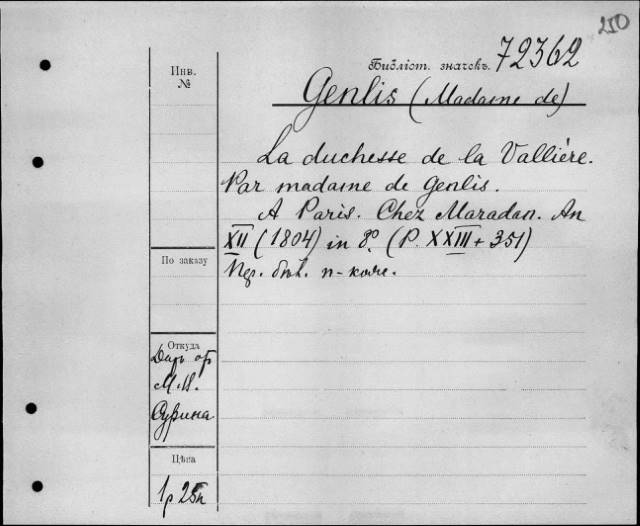 250
Библіот. значекъ 72362
Инв.
№
Genlis (Madame de)
La duchesse de la Vallière.
Par madame de Genlis.
A Paris. Chez Maradan. An
XII (1804) in 8º. (P. XXIII + 351)
По заказу
Откуда
Даръ
М. И.
Сурина
Цѣна
1 р 25к